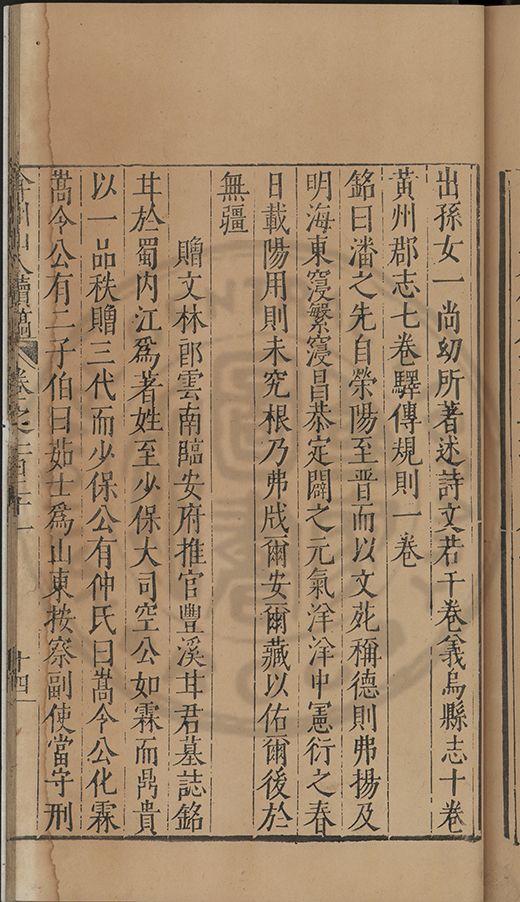 出孫女一尚幼所著述詩文若干卷義烏縣志十卷
黃州郡志七卷驛傳規則一卷
銘曰潘之先自榮陽至晋而以文苑稱德則弗揚及
明海東寖繁寖昌恭定闢之元氣洋洋中憲衍之春
日載陽用則未究根乃弗戕爾安爾藏以佑爾後於
無疆
贈文林郎雲南臨安府推官豐溪甘君墓誌銘
甘於蜀内江爲著姓至少保大司空公如霖而鼎貴
以一品秩贈三代而少保公有仲氏曰嵩令公化霖
嵩令公有二子伯曰茹士爲山東按察副使當守刑
續稿 卷之一百二十一
十四